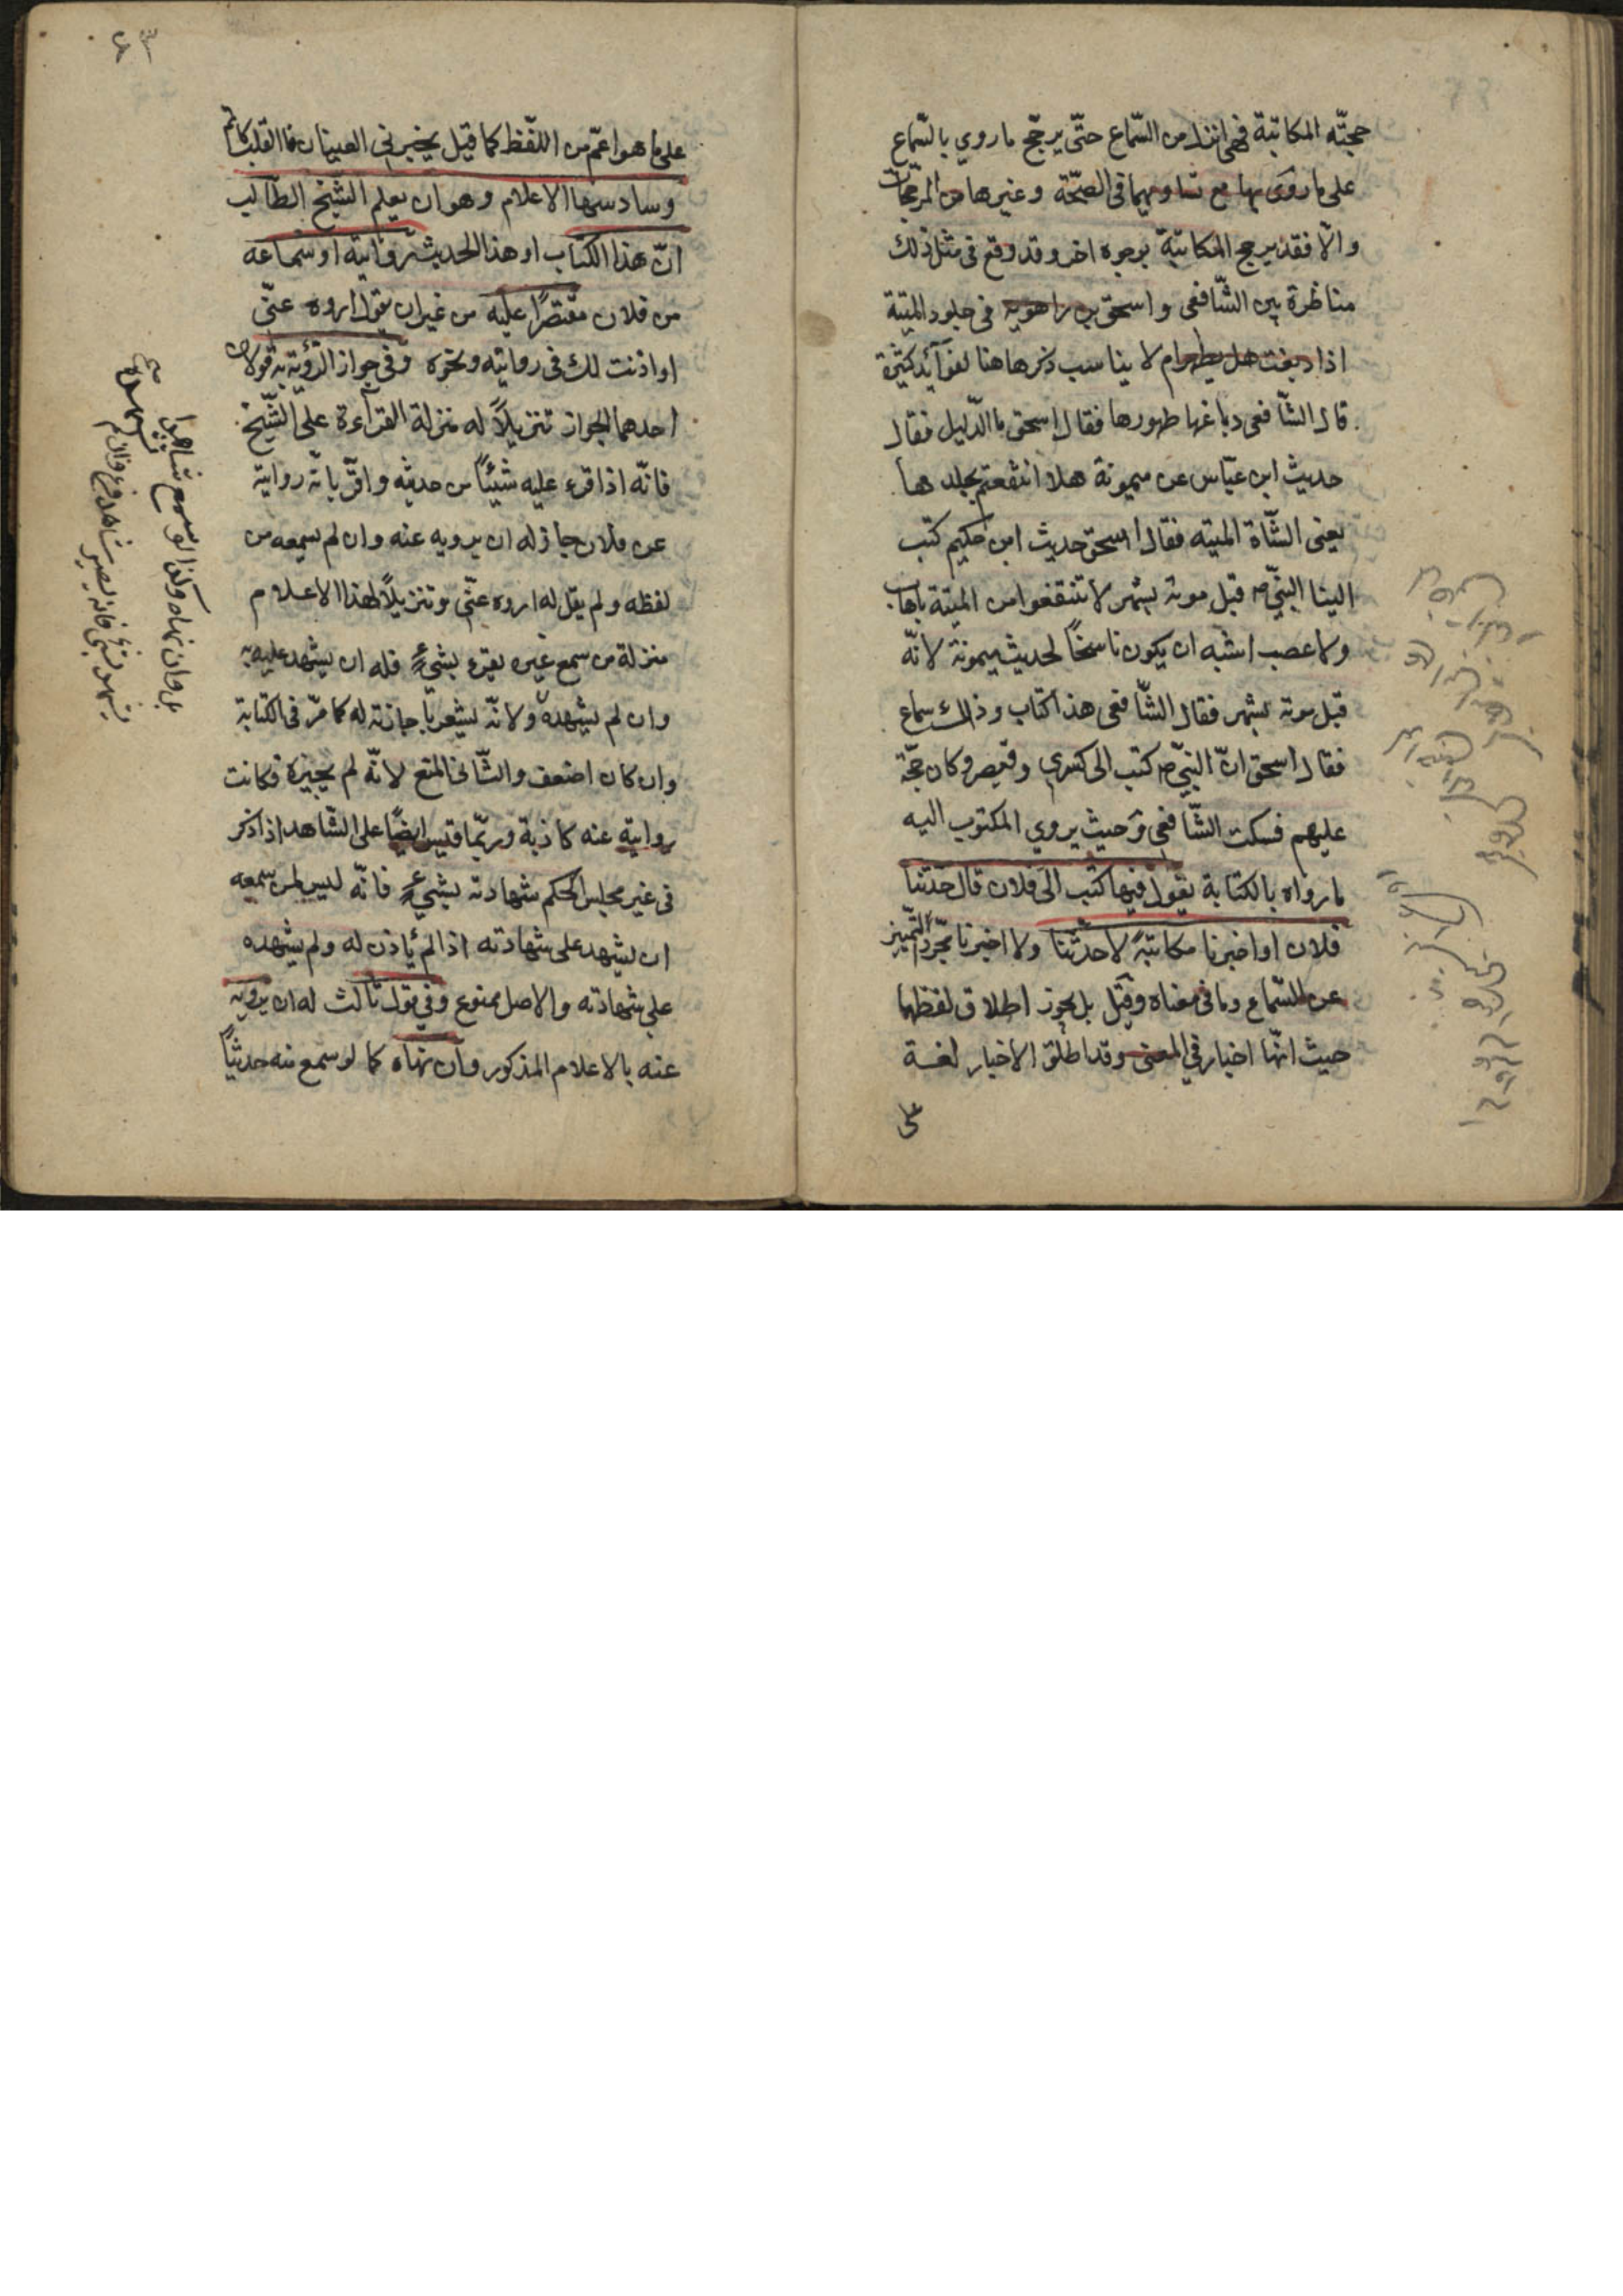 حجتّه المكاتبة فهى انزل من السّماع حتّى يرجّح ما روي بالسّماع
على ما روى بها مع تساويهما فى الصحّة وغيرها من المرجّحات
والّا فقد يرجح المكاتبة بوجوه اخر وقد وقع فى مثل ذلك
مناظرة بين الشّافعى واسحق بن راهويه فى جلود الميتة
اذا دبغت هل يطهر ام لا يناسب ذكرها هنا لفوآئد كثيرة
قال الشّافعى دباغها طهورها فقال اسحق ما الدّليل فقال
حديث ابن عبّاس عن ميمونة هلا انتفعتم بجلدها
يعنى الشّاة الميتة فقال اسحق حديث ابن حكيم كتب
الينا النبيّ ص قبل موته بشهر لا تنتفعوا من الميتة باهاب
ولا عصب اشبه ان يكون ناسخاً لحديث ميمونة لانّه
قبل موته بشهر فقال الشّافعى هذا كتاب وذاك سماع
فقال اسحق انّ النبيّ ص كتب الى كسرى وقيصر وكان حجّة
عليهم فسكت الشّافعى وحيث يروي المكتوب اليه
ما رواه بالكتابة يقول فيها كتب الى فلان قال حدّثنا
فلان او اخبرنا مكاتبةً لا حدّثنا ولا اخبرنا مجرّدا ليتميّز
عن السّماع وما فى معناه وقيل بل يجوز اطلاق لفظهما
حيث انّها اخبار في المعنى وقد اطلق الاخبار لغة
على
٤٣
على ما هو اعمّ من اللّفظ كما قيل يخبرني العينان ما القلب كاتم
وسادسها الاعلام وهو ان يعلم الشّيخ الطّالب
انّ هذا الكتاب او هذا الحديث روايته او سماعه
من فلان مقتصراً عليه من غير ان يقول اروه عنّى
او اذنت لك فى روايته ونحوه وفى جواز الرّوية به قولان
احدهما الجواز تنزيلاً له منزلة القرآءة على الشّيخ
فانّه اذا قرء عليه شيئاً من حديثه واقرّ بانّه روايته
عن فلان جاز له ان يرويه عنه وان لم يسمعه من
لفظه ولم يقل له اروه عنّى وتنزيلاً لهذا الاعلام
منزلة من سمع غيره يقرء بشيءٍ فله ان يشهد عليه به
وان لم يشهده ولانّه يشعر باجازته له كما مرّ فى الكتابة
وان كان اضعف والثّانى المنع لانّه لم يجيزه فكانت
روايته عنه كاذبة وربّما قيس ايضًا على الشّاهد اذا ذكر
فى غير مجلس الحكم شهادته بشيءٍ فانّه ليس لمن سمعه
ان يشهد على شهادته اذا لم يأذن له ولم يشهده
على شهادته والاصل ممنوع وفي قول ثالث له ان يرويه
عنه بالاعلام المذكور وان نهاه كما لو سمع منه حديثاً